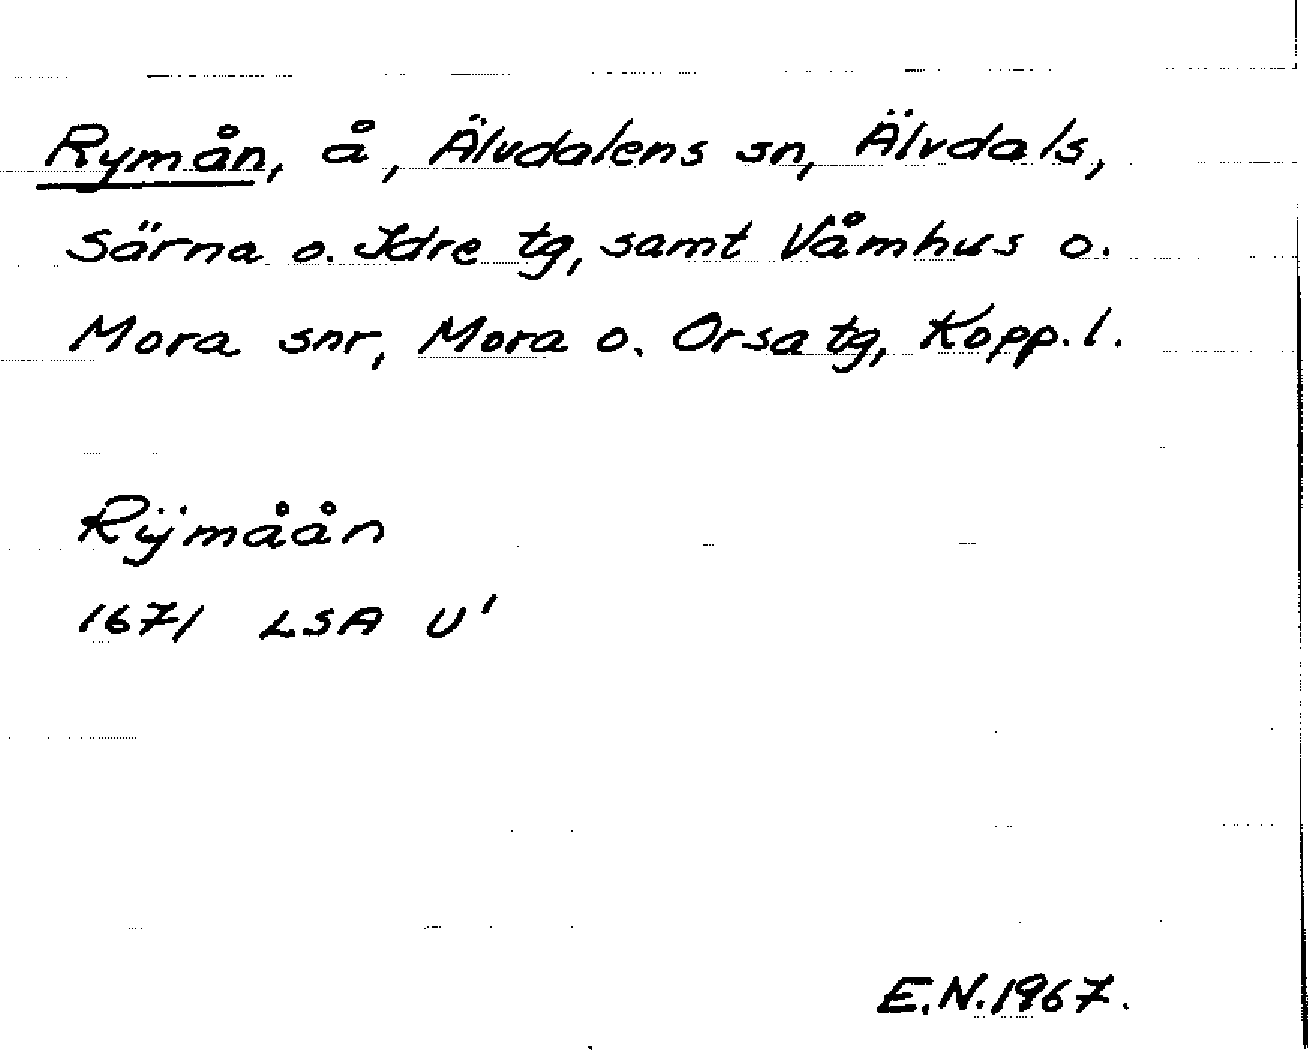 Rymån, å, Älvdalens sn, Älvdals,
Särna o. Idre tg, samt Våmhus o.
Mora snr, Mora o. Orsa tg, Kopp. l.
Rÿmåån
1671 LSA U'
E.N. 1967.